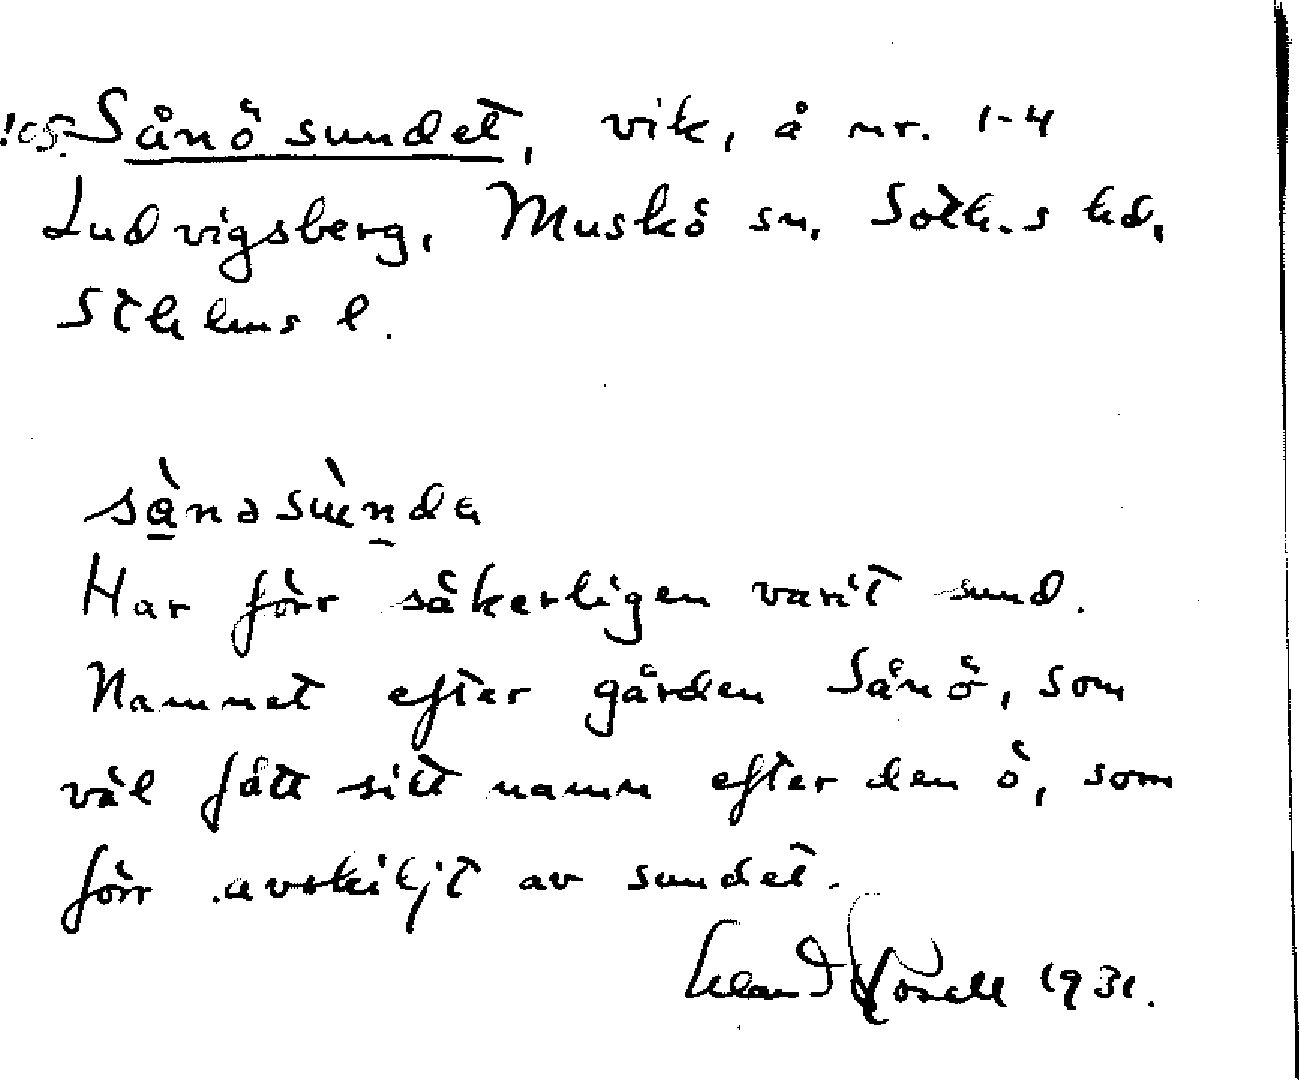 105. Sånö sundet, vik, å nr. 1-4
Ludvigsberg, Muskö sn, Soth.s hd,
Sthlms l.
Har förr säkerligen varit sund.
Namnet efter gården Sånö, som
väl fått sitt namn efter den ö, som
förr avskiljt av sundet.
1931.